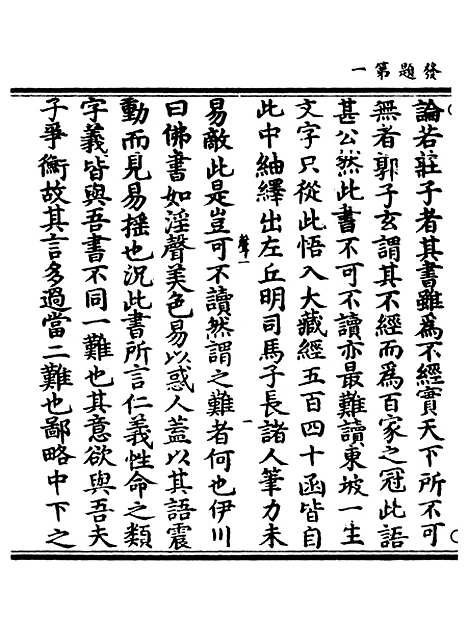 發題第一
論若莊子者其書雖爲不經實天下所不可
無者郭子玄謂其不經而爲百家之冠此語
甚公然此書不可不讀亦最難讀東坡一生
文字只從此悟入大藏經五百四十函皆自
此中紬繹出左丘明司馬子長諸人筆力未
聲一
一
易敵此是豈可不讀然謂之難者何也伊川
曰佛書如淫聲美色易以惑人蓋以其語震
動而見易揺也況此書所言仁義性命之類
字義皆與吾書不同一難也其意欲與吾夫
子爭衡故其言多過當二難也鄙略中下之